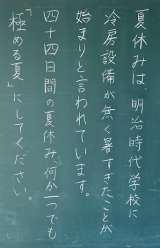 夏休みは、明治時代学校に
冷房設備が無く暑すぎたことが
始まりと言われています。
四十四日間の夏休み、何か一つでも
「極める夏」にしてください。